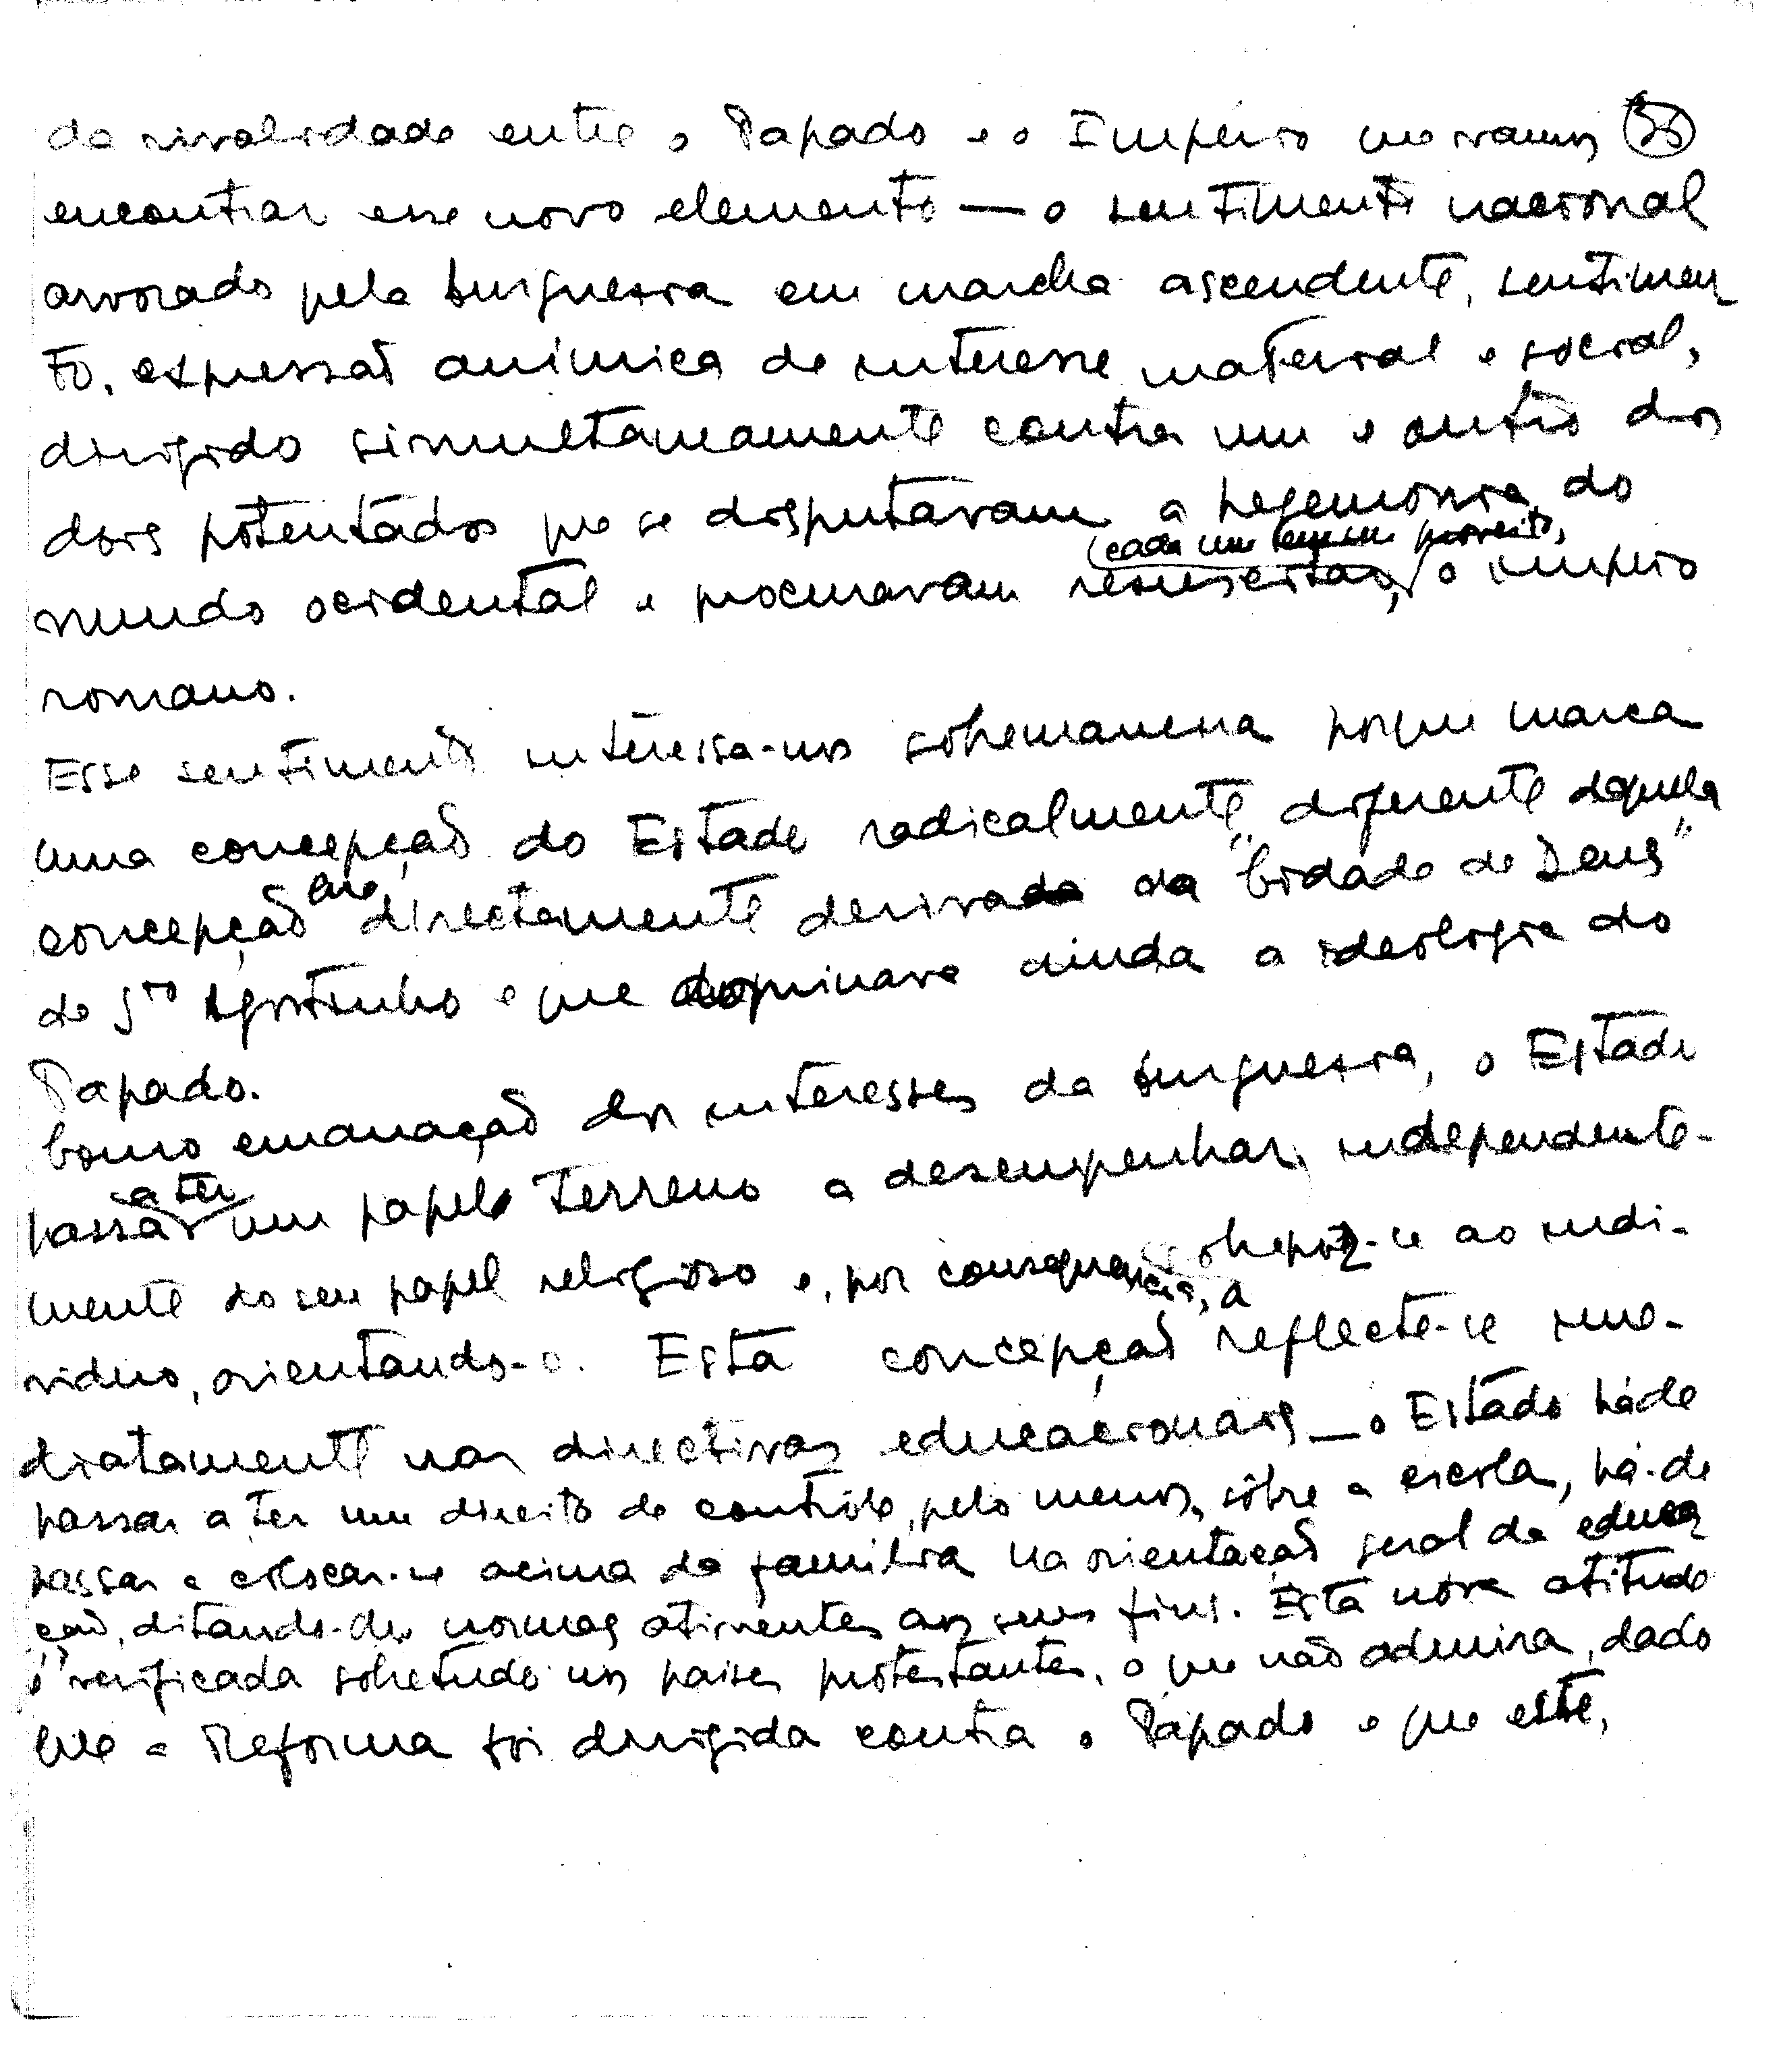 da rivalidade entre o Papado e o Império que vamos 35
encontrar esse novo elemento — o sentimento nacional
arvorado pela burguesia em marcha ascendente, sentimen
to, expressão anímica de interesse material e social,
dirigido simultaneamente contra um e outro dos
dois potentados que se disputavam a hegemonia do
(cada um em seu proveito,
mundo ocidental e procuravam ressuscitar, o império
romano.
Esse sentimento interessa-nos sobremaneira porque marca
uma concepção do Estado radicalmente diferente daquela
concepção que directamente derivada da "Cidade de Deus"
de Sto Agostinho e que dominava ainda a ideologia do
Papado.
Como emanação dos interesses da burguesia, o Estado
a ter
passa um papel terreno a desempenhar, independente-
mente do seu papel religioso e, por consequência, sobrepõe-se ao indi-
víduo, orientando-o. Esta concepção reflecte-se ime-
diatamente nas directivas educacionais — o Estado há de
passar a ter um direito de contrôle, pelo menos, sôbre a escola, há-de
passar a colocar-se acima da família na orientação geral da educa
ção, ditando-lhe normas atinentes aos seus fins. Esta nova atitude
é verificada sobretudo nos países protestantes, o que não admira, dado
que a Reforma foi dirigida contra o Papado e que este,